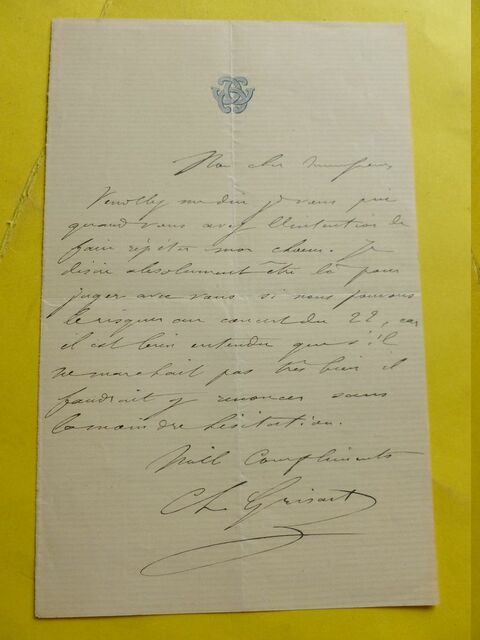 Mon cher Monsieur
Veuillez me dire je vous prie
quand vous avez l'intention de
faire répéter mon choeur. Je
désire absolument être là pour
juger avec vous si nous pouvons
le risquer au concert du 22, car
il est bien entendu que s'il
ne marchait pas très bien il
faudrait y renoncer sans
la moindre hésitation.
Mill Compliments
Ch Grisart